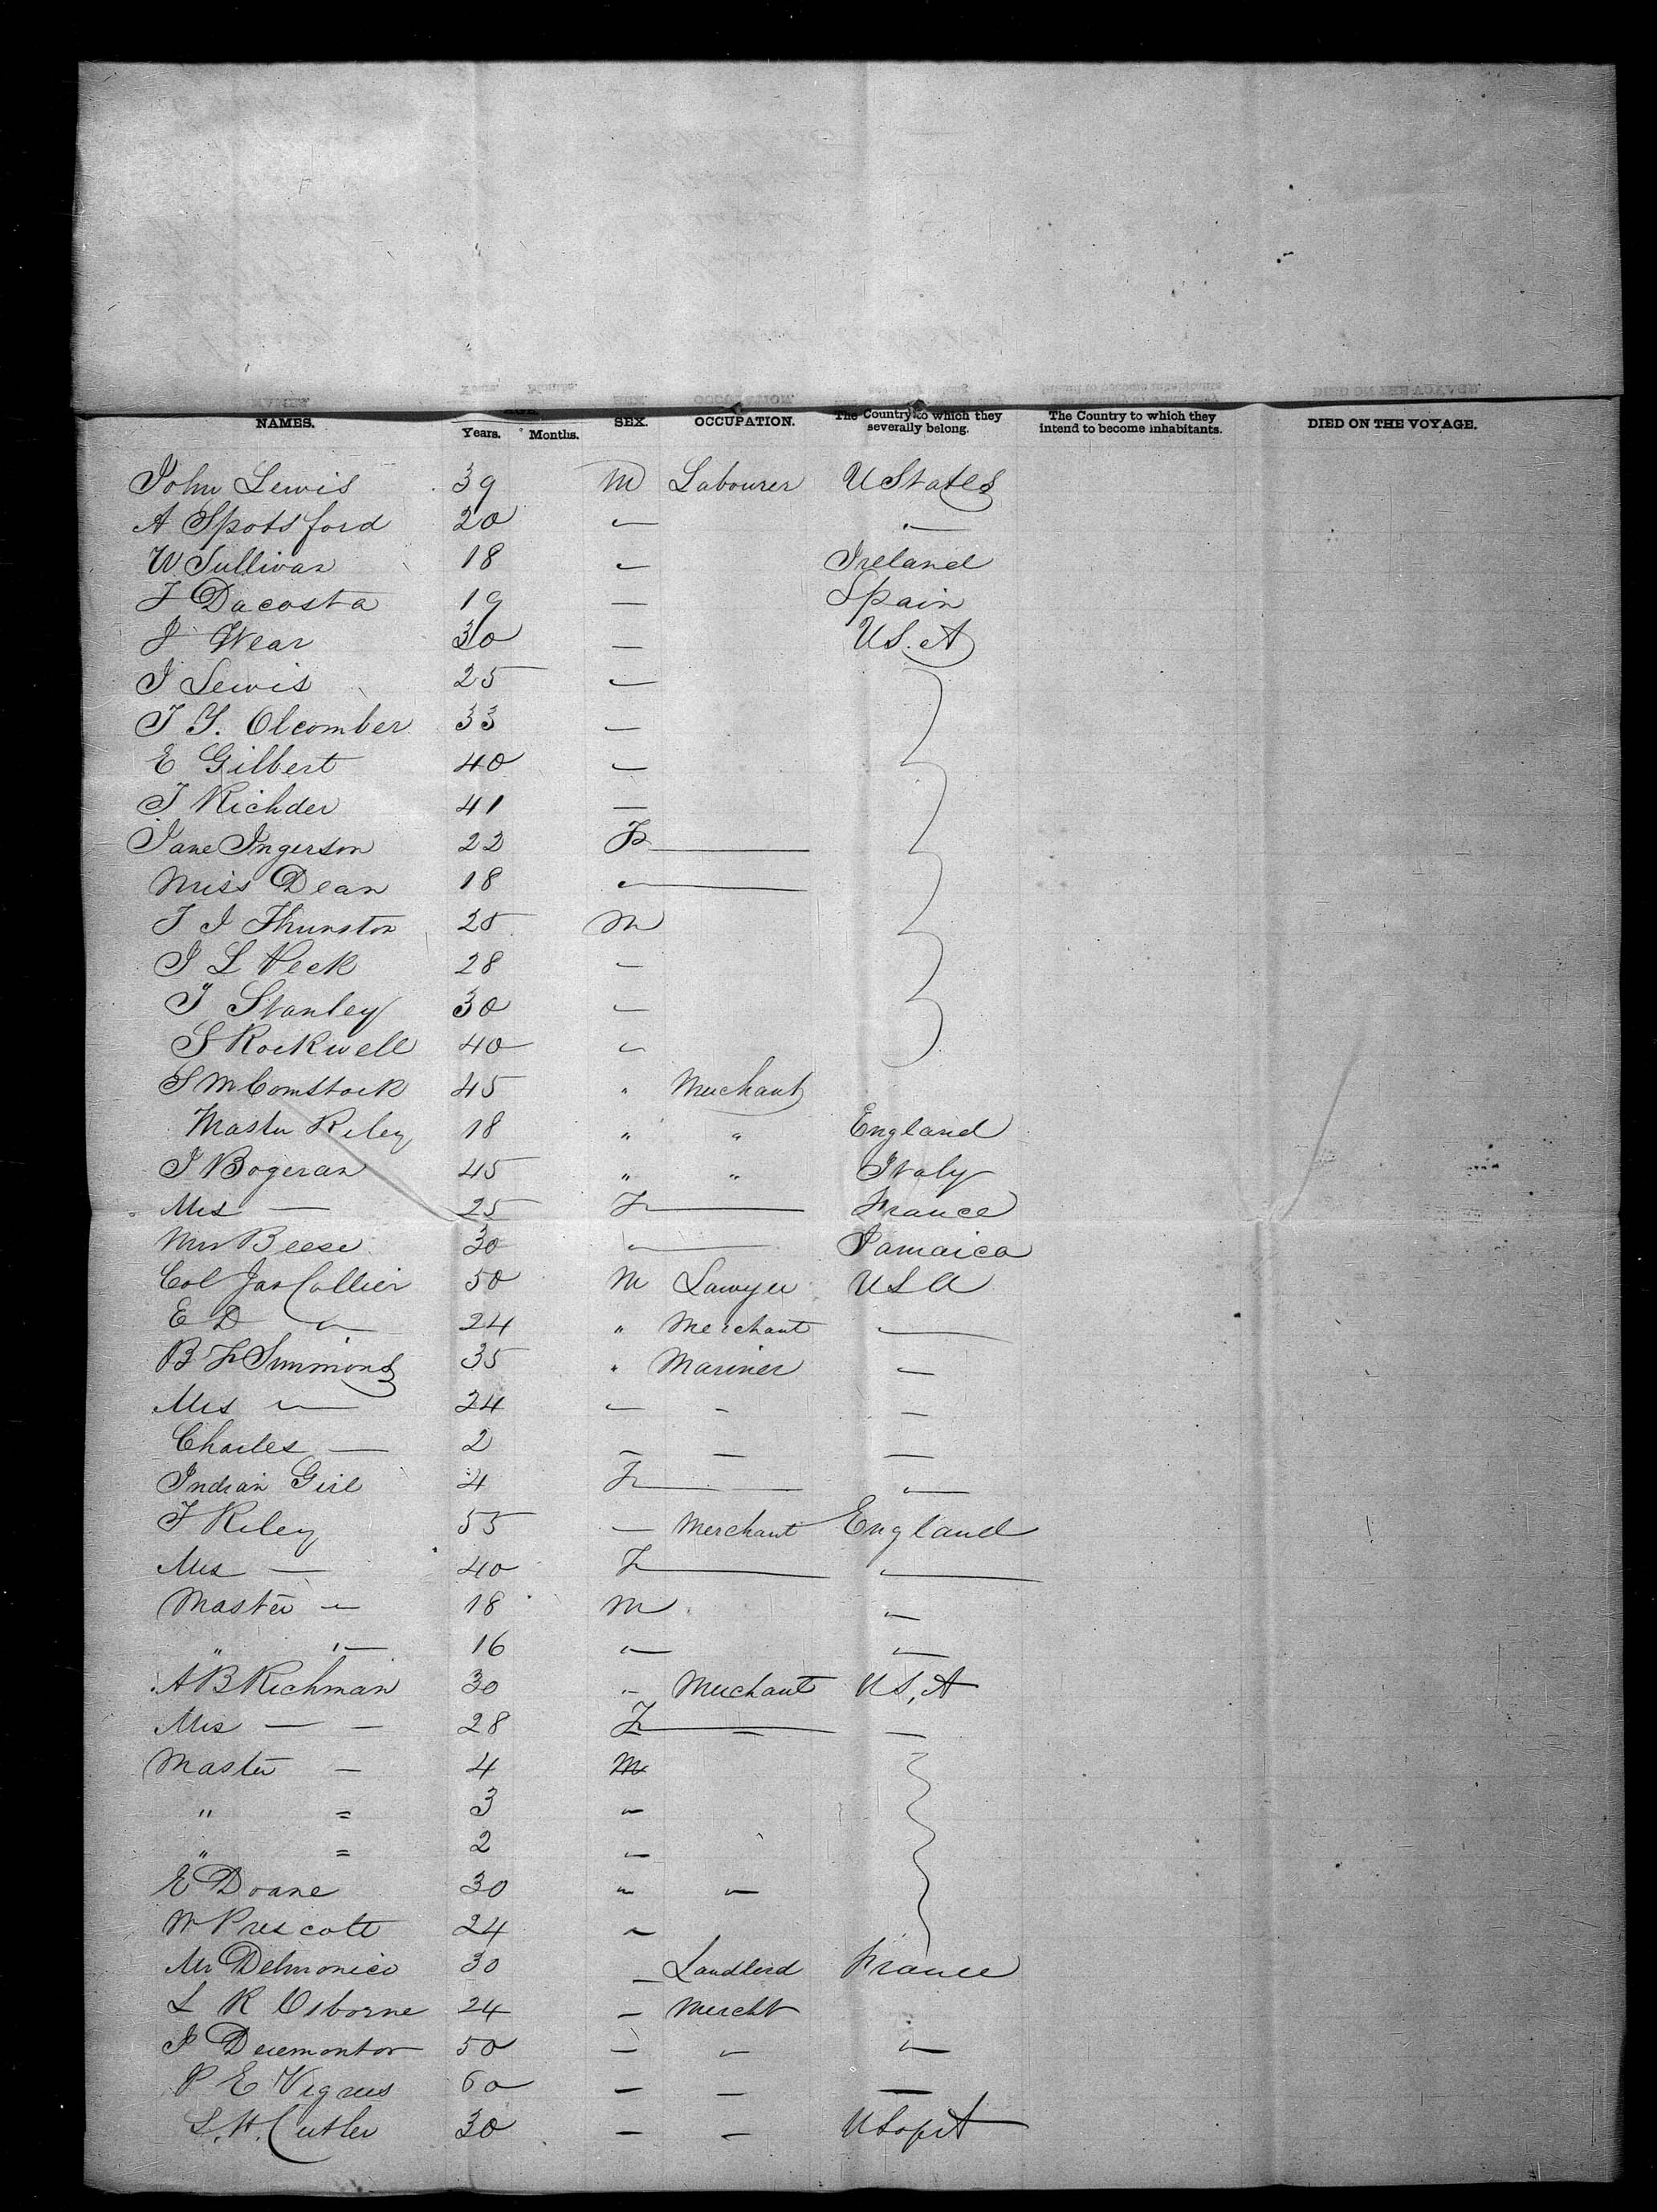 NAMES. AGE. Years. Months. SEX. OCCUPATION. The Country to which they severally belong. The Country to which they intend to become inhabitants. DIED ON THE VOYAGE.
John Lewis 39 M Labourer UStates
A Spotsford 20 " "
W Sullivan 18 " Ireland
J Dacosta 19 — Spain
J Wear 30 — US.A
J Lewis 25 "
J Y. Olcomber 33 —
E Gilbert 40 "
J Richder 41 —
Jane Ingerson 22 F —
Miss Dean 18 " —
T J Thurston 25 M
J L Peck 28 —
J Stanley 30 "
S Rockwell 40 "
S M Comstock 45 " Merchant
Master Riley 18 " " England
J Bogeran 45 " " Italy
Mrs — 25 F — France
Mrs Beese 30 " — Jamaica
Col Jas Collier 50 M Lawyer USA
E D " 24 " Merchant —
B F Simmons 35 " Mariner —
Mrs " 24 " - —
Charles — 2 — — —
Indian Girl 4 F — "
J Riley 55 — Merchant England
Mrs — 40 F — "
Master " 18 M "
" " 16 " "
A B Richman 30 " Merchant US,A
Mrs — - 28 F — —
Master — 4 M
" = 3 "
" = 2 "
E Doane 30 " "
W Prescott 24 "
Mr Delmonico 30 — Landlord France
L R Osborne 24 — Mercht
J 50 — " "
P E 60 — — —
S. H. Cutler 30 — — US of A